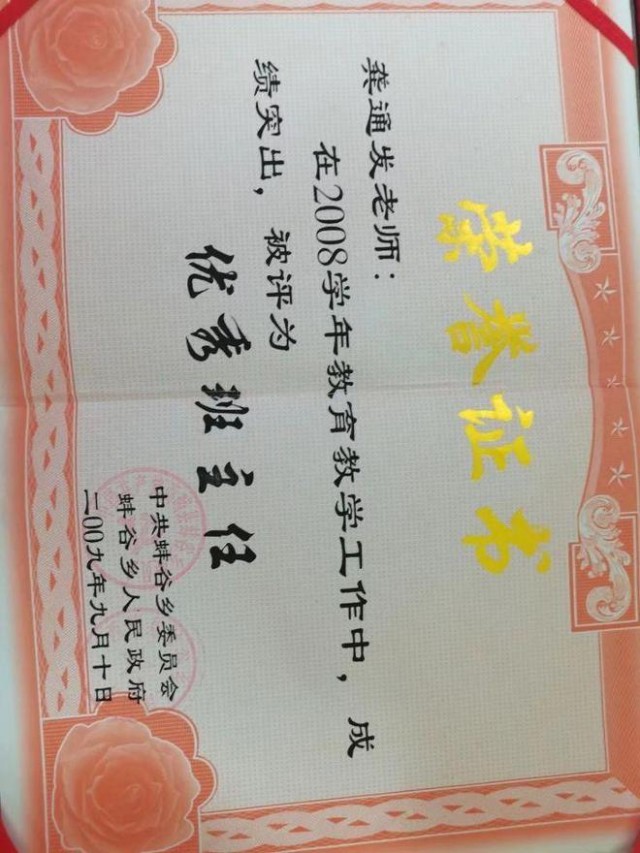 荣誉证书
龚通发老师：
在2008学年教育教学工作中，成
绩突出，被评为
优秀班主任
中共蚌谷乡委员会
蚌谷乡人民政府
二00九年九月十日